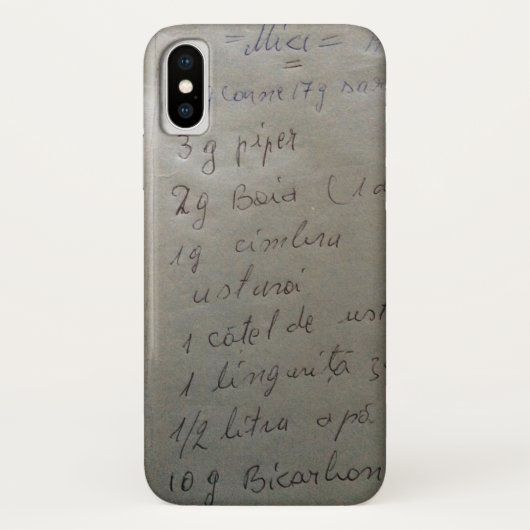 = Mici =
carne 17g sar
3 g piper
2g Boia (1
1g cimbru
usturoi
1 cățel de ust
1 linguriță
1/2 litru apă
10 g Bicarbon